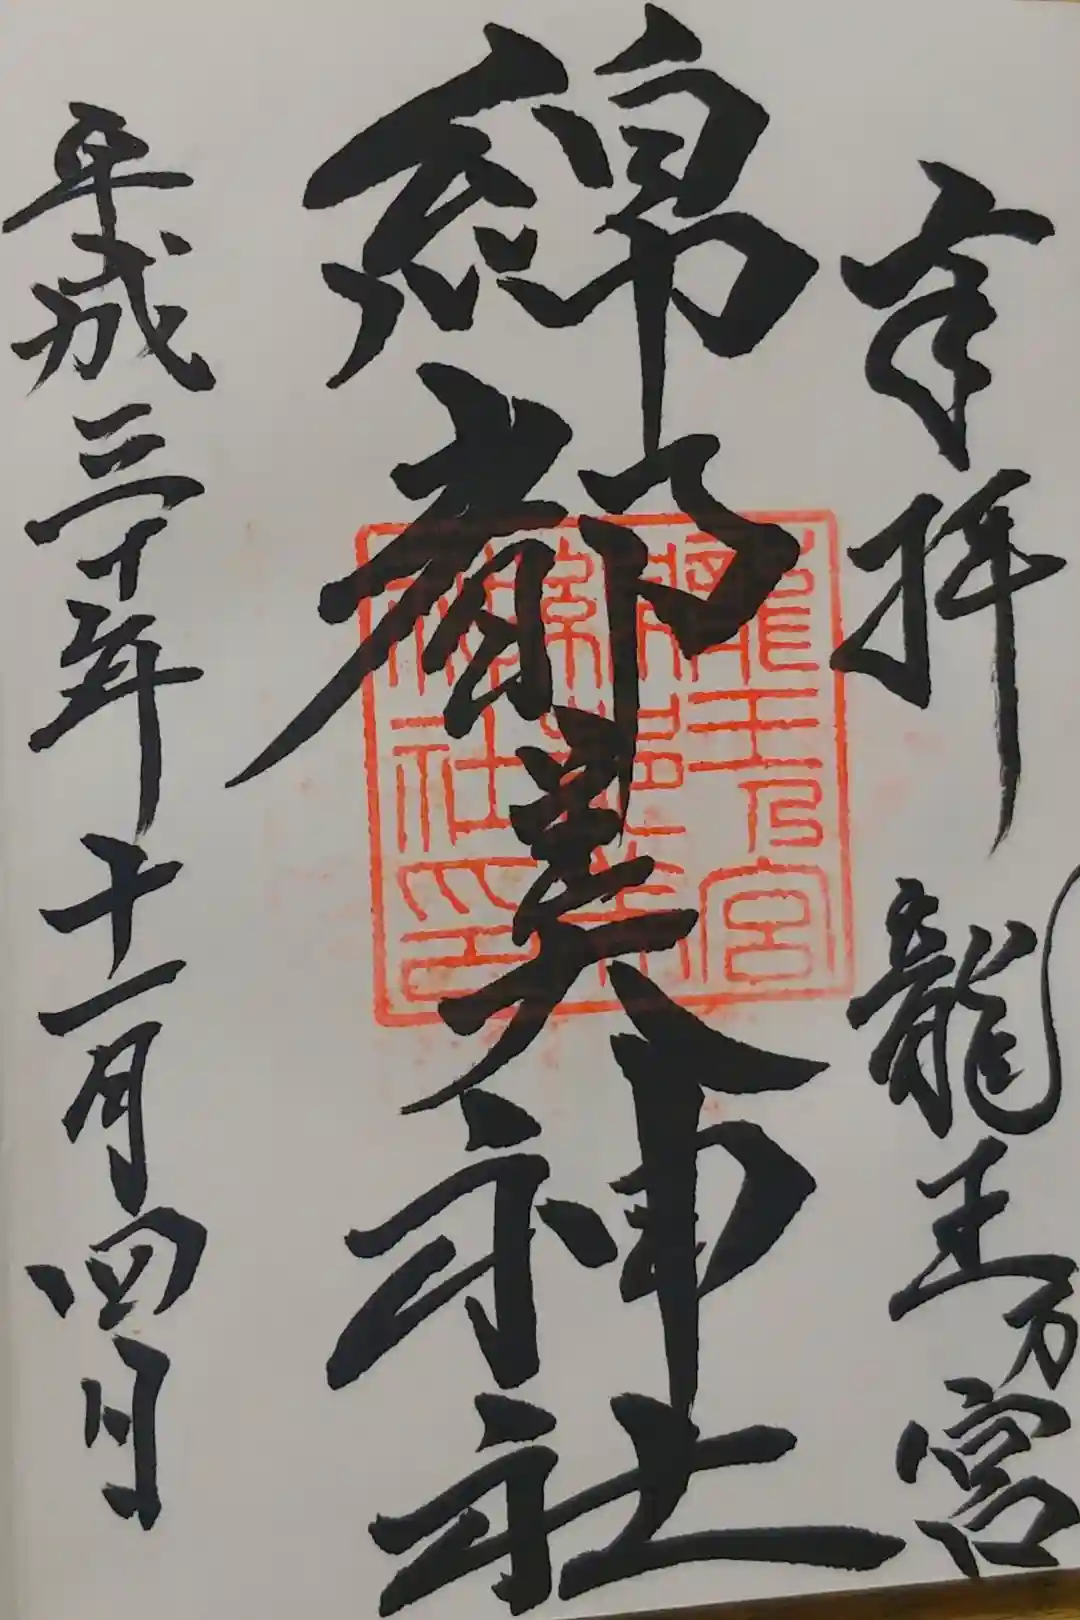 奉拝 龍王乃宮
綿都美神社
龍王乃宮
綿都美
神社印
平成三十年十一月四日